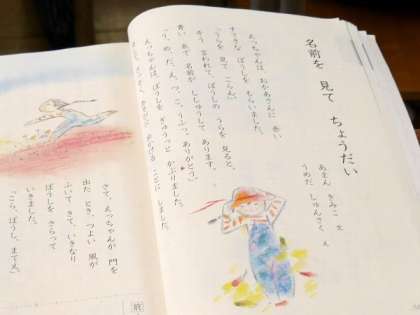 名前を 見て ちょうだい
あまん きみこ 文
うめだ しゅんさく 絵
えっちゃんは、おかあさんに 赤い
すてきな ぼうしを もらいました。
「うらを 見て ごらん。」
そう 言われて、ぼうしの うらを 見ると、
青い 糸で 名前が ししゅうして あります。
「う、め、だ、え、つ、こ。うふっ。ありがとう。」
えっちゃんは、ぼうしを ぎゅうっと かぶりました。
さて、えっちゃんが 門を
出た とき、つよい 風が
ふいて きて、いきなり
ぼうしを さらって
いきました。
「こら、ぼうし、まてえ。」